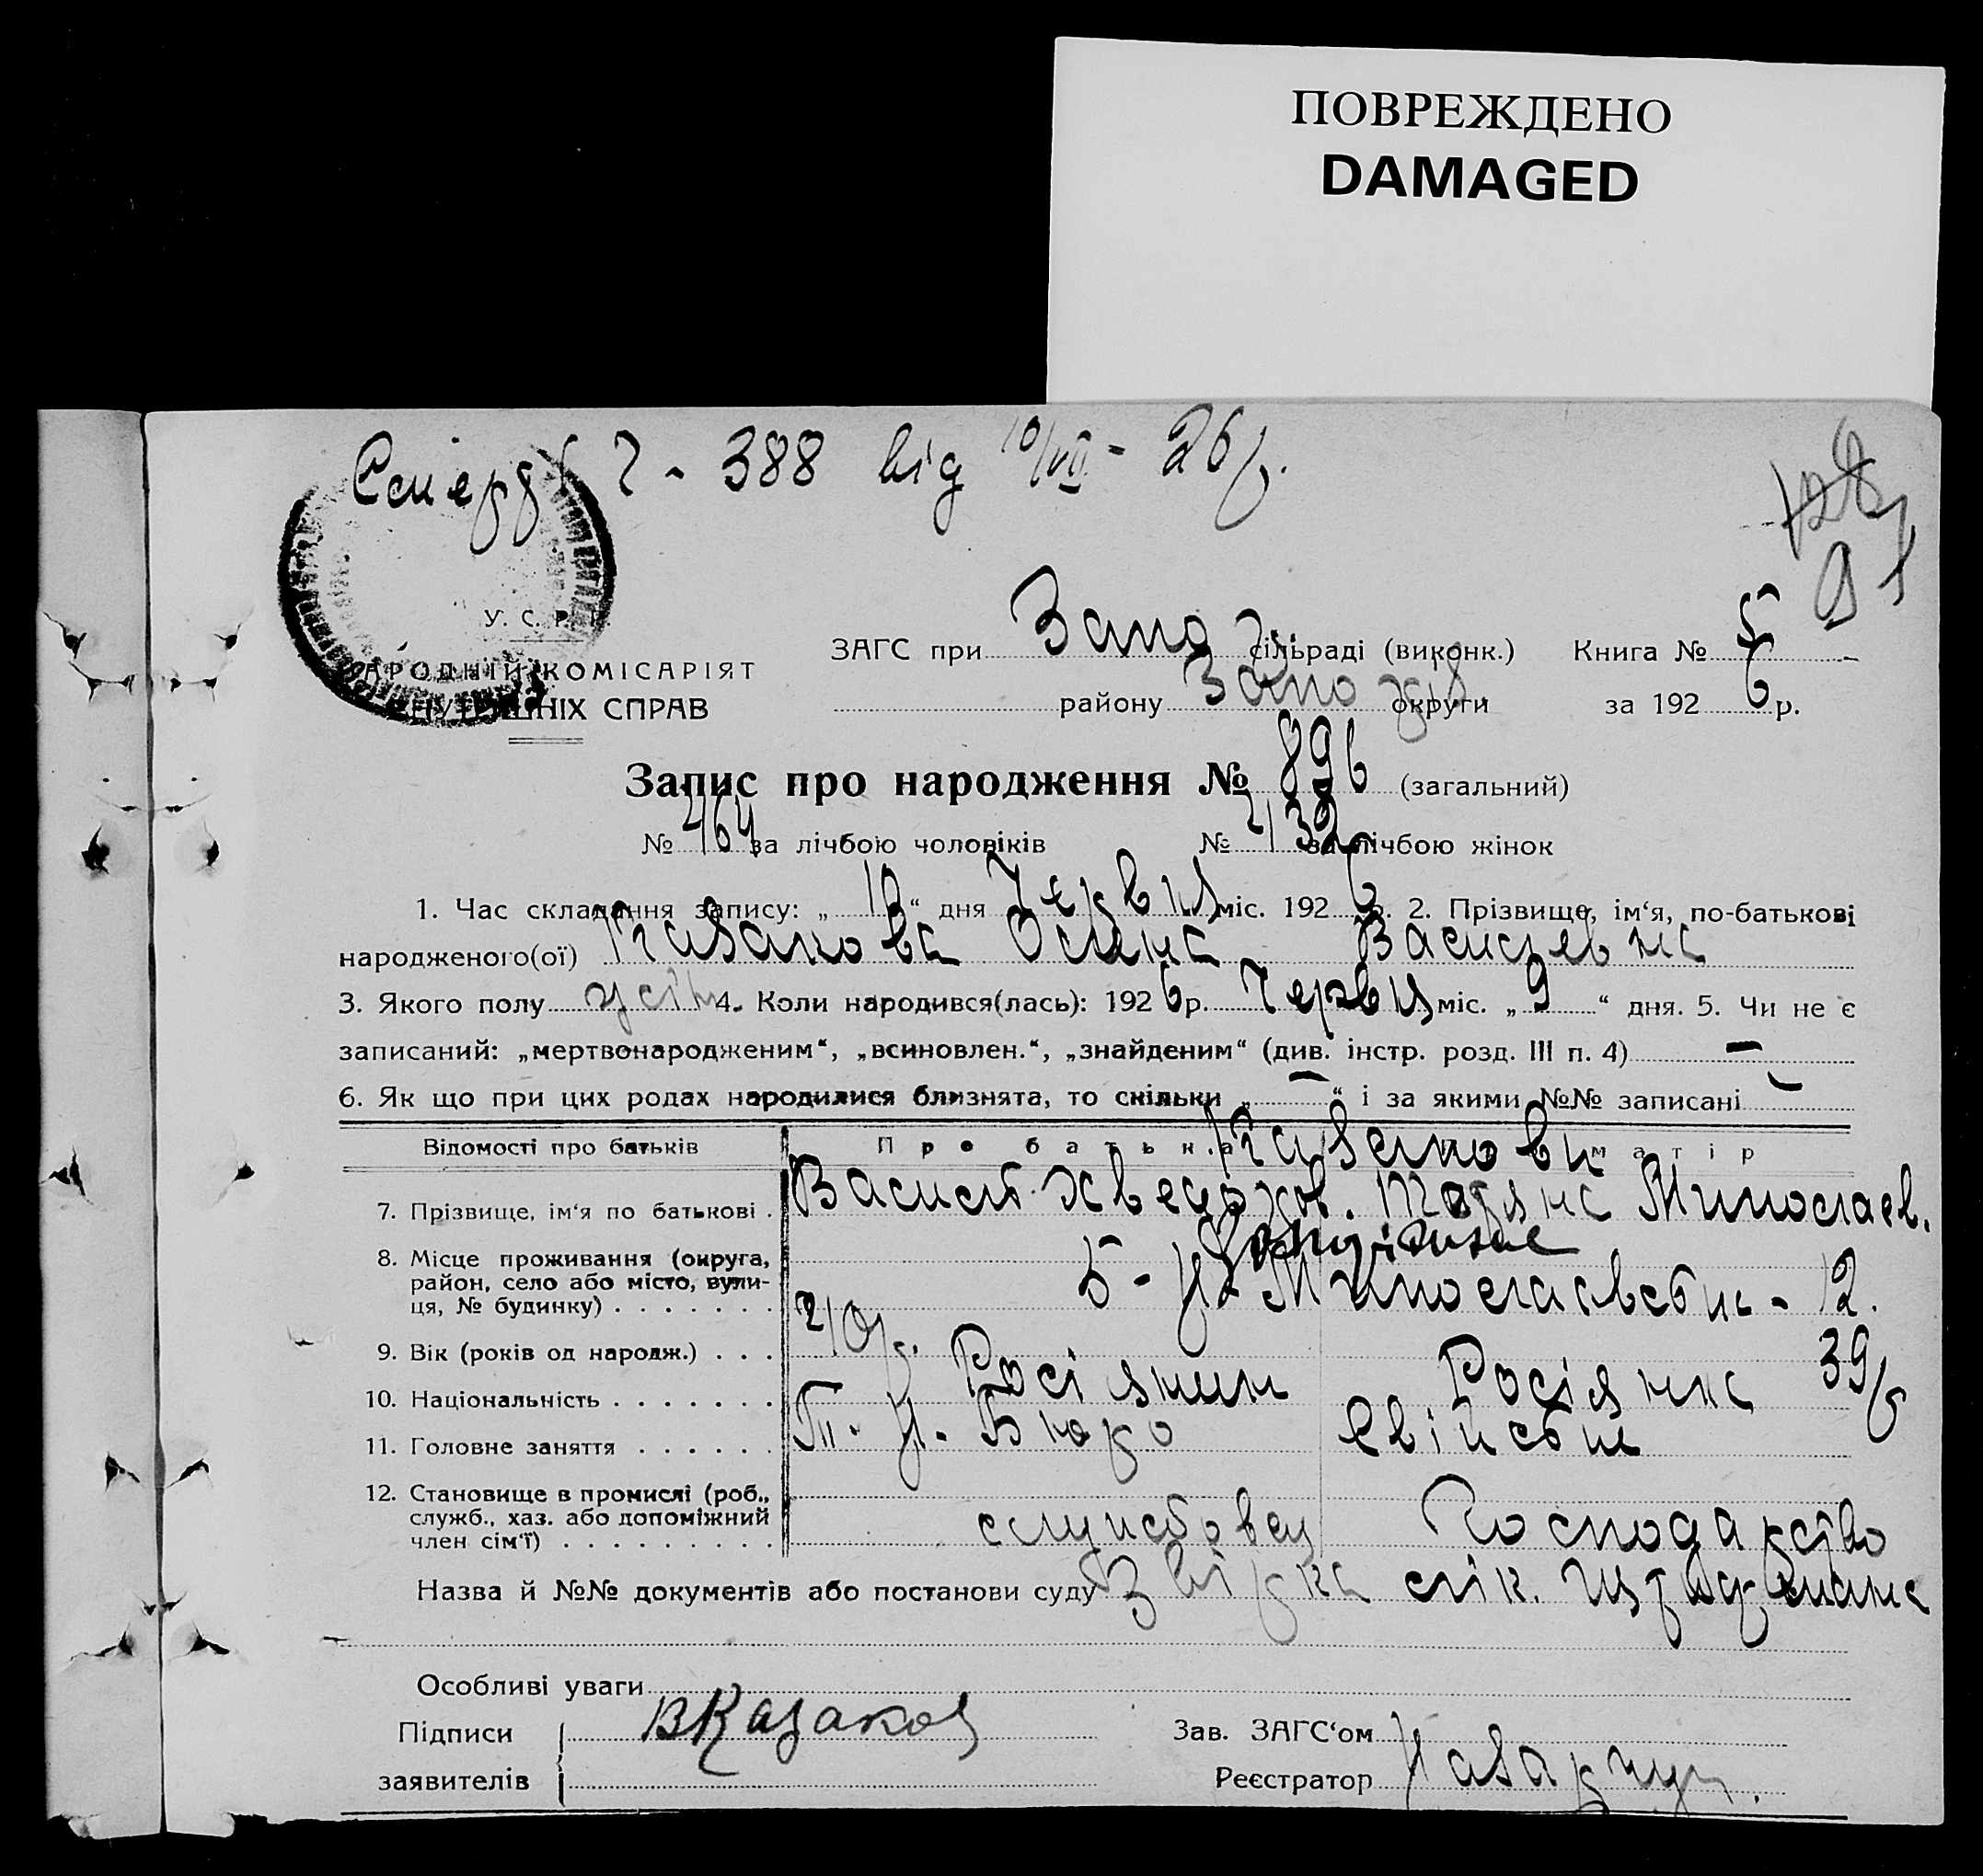 ПОВРЕЖДЕНО
DAMAGED
388 від 10/VII - 26 р.
91
У. С. Р. Р.
ЗАГС при Запо сільраді (виконк.) Книга № 5
АРОДНІЙ КОМІСАРІЯТ
району Запоріз. округи за 192 6 р.
ВНУТРІШНІХ СПРАВ
Запис про народження № 896 (загальний)
№ 464 за лічбою чоловіків № 432 за лічбою жінок
1. Час складання запису: „ “ дня Червця міс. 192 6 р. 2. Прізвище, ім‘я, по-батькові
народженого(ої) Казакова Олена Василевна
3. Якого полу жін 4. Коли народився(лась): 192 6 р. Червця міс. „ 9 “ дня. 5. Чи не є
записаний: „мертвонародженим“, „всиновлен.“, „знайденим“ (див. інстр. розд. III п. 4) —
6. Як що при цих родах народилися близнята, то скільки „ — “ і за якими №№ записані —
Відомості про батьків Про батька матір
Казакови
7. Прізвище, ім‘я по батькові . Василь Хведоров. Татяна Миколаев.
8. Місце проживання (округа,
район, село або місто, вули-
ця, № будинку) . . . . . . . Миколаевська - 12.
9. Вік (років од народж.) . . . 40 р. 39 р
10. Національність . . . . . . . Росіянин Росіянка
11. Головне заняття . . . . . . Бюро свійське
12. Становище в промислі (роб.,
служб., хаз. або допоміжний
член сім‘ї) . . . . . . . . . службовец господарство
Назва й №№ документів або постанови суду Звірка лік.
Особливі уваги
Підписи В Казаков Зав. ЗАГС‘ом
заявителів Реєстратор